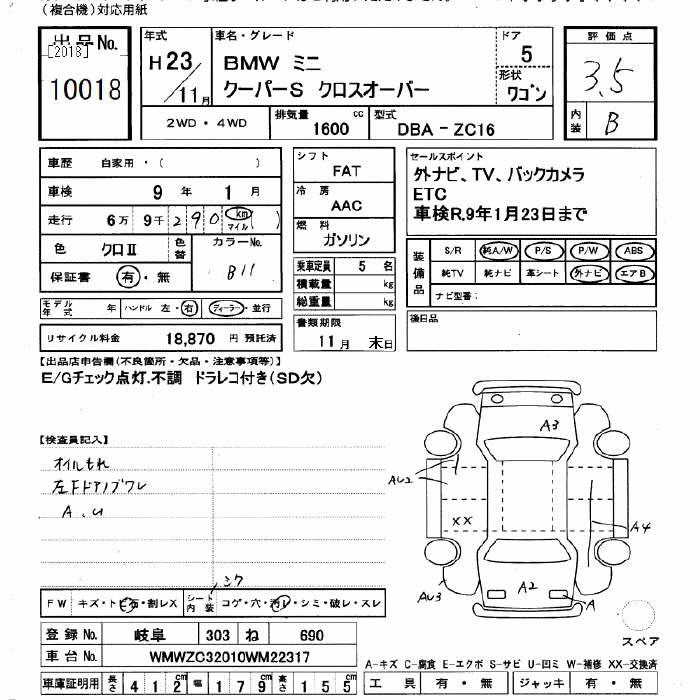 (複合機)対応用紙
出品No. [2018] 10018
年式 H23/11月
車名・グレード
BMW ミニ
クーパーS クロスオーバー
ドア 5
形状 ワゴン
評価点 3.5
内装 B
2WD・4WD
排気量 1600 cc
型式 DBA-ZC16
車歴 自家用・( )
車検 9年 1月
走行 6万9千290 km マイル( )
色 クロII 色替 カラーNo. B11
保証書 有・無
シフト FAT
冷房 AAC
燃料 ガソリン
乗車定員 5名
積載量 kg
総重量 kg
セールスポイント
外ナビ、TV、バックカメラ
ETC
車検R,9年1月23日まで
装備品 S/R 純A/W P/S P/W ABS
純TV 純ナビ 革シート 外ナビ エアB
ナビ型番:
モデル年式 年 ハンドル 左・右 ディーラー・並行
リサイクル料金 18,870 円 預託済
書類期限
11月 末日
後日品
【出品店申告欄(不良箇所・欠品・注意事項等)】
E/Gチェック点灯.不調 ドラレコ付き(SD欠)
【検査員記入】
オイルもれ
左Fドアノブワレ
A、U
A3
AU2
XX
A4
AU3
A2
A
シワ
FW キズ・トビ石・割レX シート内装 コゲ・穴・汚レ・シミ・破レ・スレ
スペア
登録No. 岐阜 303 ね 690
車台No. WMWZC32010WM22317
A-キズ C-腐食 E-エクボ S-サビ U-凹ミ W-補修 XX-交換済
車庫証明用 長さ 412cm 幅 179cm 高さ 155cm
工具 有・無 ジャッキ 有・無